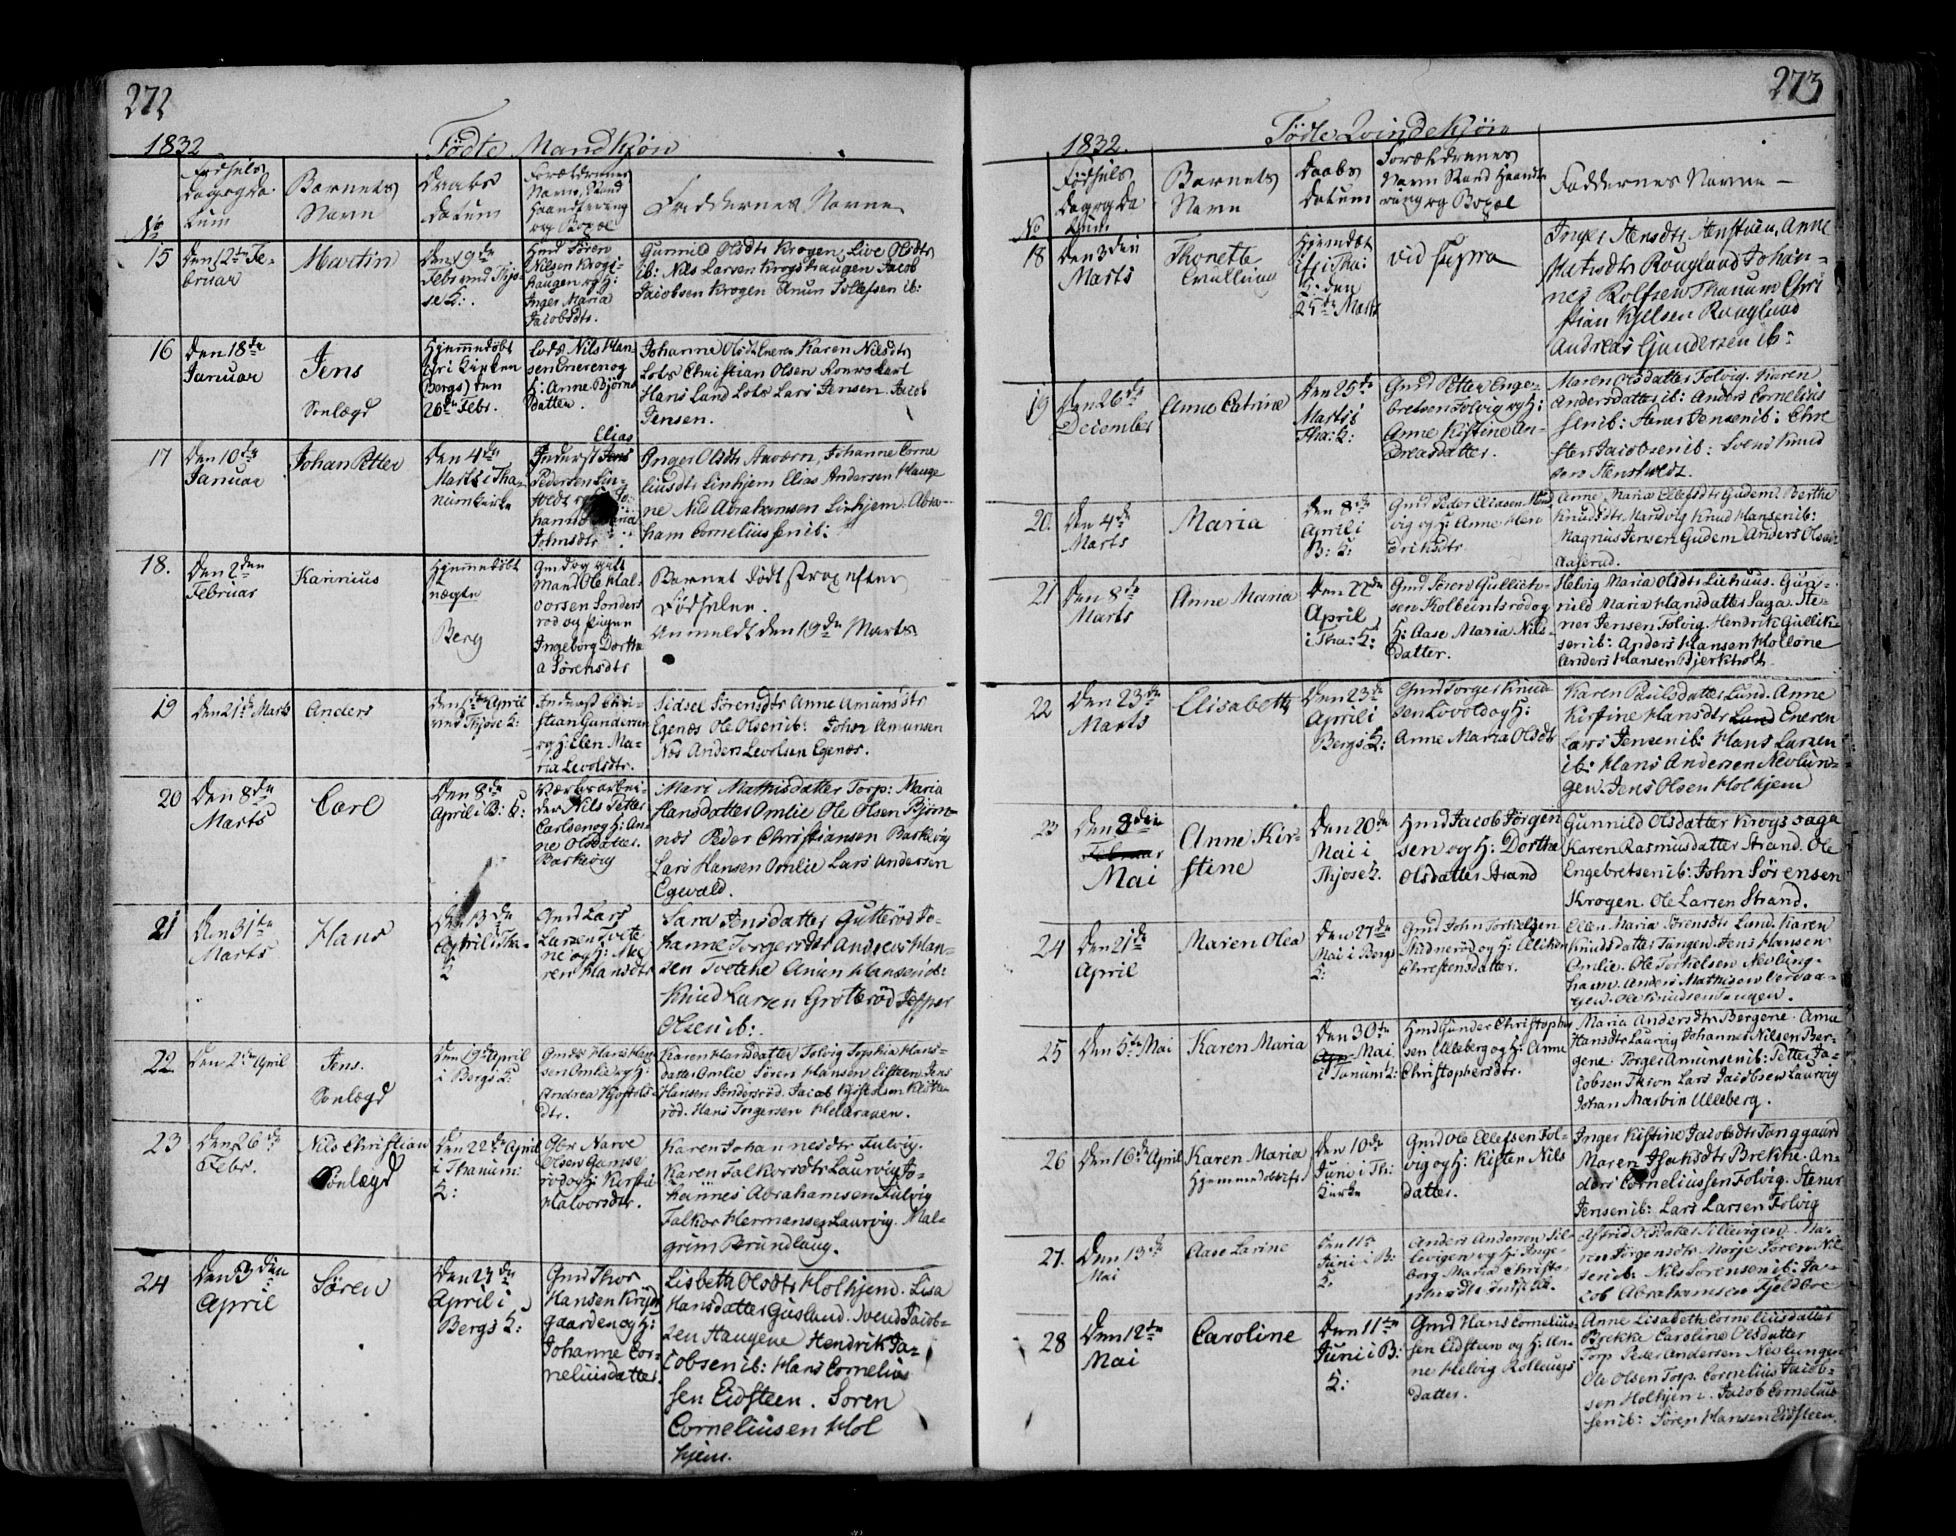 272
1832 Födte Mandkjön
No
Födsels Dag og Da-
tum
Barnets
Navn
Daabs
Datum
Forældrenes
Navn, Stand
Haandtering
og Bopæl
Faddernes Navne
15
Den 12te Fe-
bruar
Martin
Den 19de
Febr ved Thjø-
se K:
Hmd Sören
Nilsen Krogs-
haugen og H:
Inger Maria
Jacobsdtr.
Gunnild Olsdtr Krogen, Live Olsdtr
ib: Nils Larsen Krogshaugen Jacob
Jacobsen Krogen Anun Tollefsen ib:
16
Den 18de
Januar
Jens
Sonlægd
Hjemmedöbt
Chri Kirken
(Bergs) den
26de Febr.
Lods Nils Han-
sen Eneren og
H: Anne Björns
datter.
Johanne Olsdtr Eneren Karen Nilsdtr
Lods Christian Olsen
Hans Lund Lods Lars Jensen. Jacob
Jensen.
17
Den 10de
Januar
Johan Petter
Den 4de
Marts i Tha-
num Kirke
Elias
Inderst Jens
Pedersen Lin-
Johnsdtr.
Inger Olsdtr Johanne Corne
liusdtr Linhjem Elias Andersen Hauge
ne Nils Abrahamsen Linhjem. Abra-
ham Corneliussen ib:
18.
Den 2den
Februar
Kannius
Hjemmedöbt
uægte
Berg
Gmd og gift
Mand Ole Hal-
vorsen Sönders
röd og Pigen
Ingeborg Dorthe
a Sörensdtr
Barnet Död strax efter
Födselen.
Anmeldt den 19de Marts.
19
Den 21de Marts
Anders
Den 1ste April
ved Thjöse K:
Inderst Chri-
stian Gundersen
og H: Elen Ma-
ria Levolsdtr.
Sidsel Sörensdtr Anne Amundsdtr
Egenæs Ole Olsen ib: Johan Amunsen
Næs Anders Levolsen Egenæs.
20
Den 8de
Marts
Carl
Den 8de
April i B: K:
Værksarbei-
der Nils Petter
Carlsen og H: An-
ne Olsdatter.
Barkevig
Mari Mathisdatter Torp: Maria
Hansdatter Omlie Ole Olsen Björn-
næs Peder Christiansen Barkevig
Lars Hansen Omlie Lars Andersen
Egevald.
21
Den 31te
Marts
Hans
Den 13de
April i Tha-
K
Gmd Lars
Larsen Tvete
ne og H: Ma
ren Hansdtr
Sara Jensdatter Gutteröd Jo-
hanne Torgersdtr Andreas Han-
sen Tvetene Anun Hansen ib:
Knud Larsen Grotteröd Jesper
Olsen ib:.
22
Den 2den April
Jens.
Sonlægd
Den 19de April
i Bergs K:
Gmds Hans Han-
sen Omlie og H:
Andrea Kjostels-
dtr.
Karen Hansdatter Tolvig Sophia Hans-
datter Omlie Sören Hansen Eisteen Jens
Hansen Sönderröd. Jacob Kjostelsen Klötte
röd. Hans Ingersen Helleraaen.
23
Den 26de
Febr.
Nils Christian
Sonlægd
Den 22de April
i Thanum:
K:
Gbr Narve
Olsen Gamse
röd og H: Kirsti
Halvorsdtr.
Karen Johannesdtr Fulvig.
Karen Falkorsdtr Laurvig Jo-
hannes Abrahamsen Fulvig
Falkor Hermansen Laurvig. Mal-
grim Brundlaug.
24
Den 3den
April
Sören
Den 23de
April i
Bergs K:
Gmd Thor
Hansen Kryds
gaarden og H:
Johanne Cor-
neliusdatter.
Lisbeth Olsdtr Holhjem. Lisa
Hansdatter Guslund. Svend Jacob-
sen Haugene Hendrik Ja-
cobsen ib: Hans Cornelius
sen Eidsteen. Sören
Corneliusen Hol
hjem.
273
1832. Födte Qvindekjön
No
Födsels
Dag og Da
tum
Barnets
Navn
Daabs
datum
Forældrenes
Navn Stand Haandte
ring og Bopæl
Faddernes Navne
18
Den 3den
Marts
Thonette
Hjemdöbt
K: den
25de Marts
vid supra
Inger Stensdtr Anne
Matisdtr Rouglund Johan-
nes Rolfsen Thanum Chri
stian Kjelsen Rouglund
Andreas Gundersen ib:
19
Den 26de
December
Anne Catrine
Den 25de
Marts i
Tha: K:
Gmd Petter Enge-
bretsen Tolvig og H:
Anne Kistine An-
dreasdatter.
Maren Olsdatter Tolvig. Karen
Andersdatter ib: Anders Cornelius
sen ib: Hans Jensen ib: Chre
sten Jacobsen ib: Svens Knud
sen Stensholdt
20.
Den 4de
Marts
Maria
Den 8de
April i
B: K:
Gmd Peder Eliasen
vig og H: Anne Hen
driksdtr
Anne Maria Ellefsdtr Gudem Berthe
Knudsdtr Marsvig Knud Hansen ib:
Magnius Jensen Gudem Anders Olsen
Aaserud.
21
Den 8de
Marts
Anne Maria
Den 22de
April
i Tha: K:
Gmd Sören Gullich-
sen Kolbeinsröd og
H: Aase Maria Nils-
datter.
Helvig Maria Olsdtr Liehuus. Gun-
nild Maria Hansdatter Saga. Ste-
ner Jensen Tolvig. Hendrik Gullik-
sen ib: Anders Hansen Hollene
Anders Hansen Bjerkholt
22
Den 23de
Marts
Elisabeth
Den 23de
April i
Bergs K:
Gmd Torger Knud
sen Lövold og H:
Anne Maria Olsdtr
Karen Paulsdatter Lund. Anne
Kistine Hansdtr Lund Eneren
Lars Jensen ib: Hans Larsen
ib: Hans Andersen Nevlun-
gen. Jens Olsen Holhjem
23
Den 3den
Februar
Mai
Anne Kir-
stine
Den 20de
Mai i
Thjose K.
Hmd Jacob Jörgen
sen og H: Dorthe
Olsdatter Strand
Gunnild Olsdatter Krogssaga
Karen Rasmusdatter Strand. Ole
Engebretsen ib: John Sörensen
Krogen. Ole Larsen Strand.
24
Den 21de
April
Maren Olea
Den 27de
Mai i Bergs
K:
Gmd John Torkildsen
og H: Ellichen
Chrestensdatter.
Ellen Maria Sörensdtr Lund. Karen
Knudsdatter Tangen. Jens Hansen
Omlie. Ole Torkelsen Nevlung-
havn. Anders Mathisen Correa-
gen. Ole Knudsen Tangen.
25
Den 5te Mai
Karen Maria
Den 30te
Apr Mai
i Tanum K:
Hmd Gunder Christopher
sen Ulleberg og H: Anne
Christophersdtr.
Maria Andersdtr Bergene. Anne
Hansdtr Laurvig Johannes Nilsen Ber-
gene. Torger Amunsen ib: Petter Ja-
cobsen Thron Lars Jacobsen Laurvig
Johan Martin Ulleberg.
26
Den 16de April
Karen Maria
Den 10de
Juni i Th:
Kirke
Gmd Ole Ellefsen Tol-
vig og H: Kisten Nils
datter.
Inger Kistine Jacobsdtr Tanggaard
Maren Isaksdtr Brekke. An-
ders Corneliussen Tolvig. Stener
Jensen ib: Lars Larsen Tolvig
27.
Den 13de
Mai
Aase Larine
Den 11te
Juni i B:
K:
Anders Andersen
og H: Inge-
borg Maria Christo-
ren Jörgensdtr Sören Nil
sen ib: Nils Sörensen ib: Ja-
cob Abrahamsen Fjeldboe
28
Den 12te
Mai
Caroline
Den 11te
Juni i B:
K:
Gmd Hans Cornelius-
sen Eidsteen og H: An-
ne Helvig Rollaugs
datter.
Anne Lisabeth Corneliusdatter
Brekke Caroline Olsdatter
Torp Peder Andersen Nevlungen
Ole Olsen Torp. Cornelius Jacob-
sen Holhjem. Jacob Cornelius
sen ib: Sören Hansen Eidsteen.